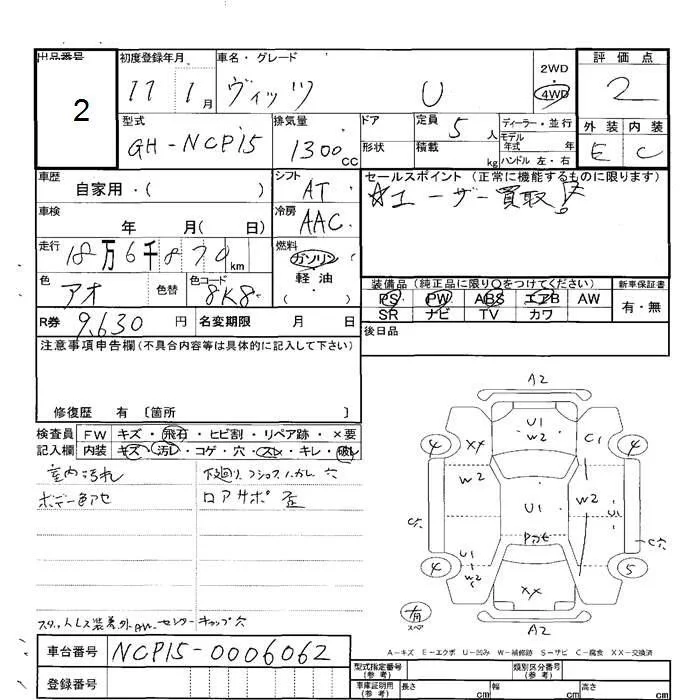 出品番号 初度登録年月 車名・グレード 評価点
2 11 1月 ヴィッツ U 2WD 4WD 2
型式 排気量 ドア 定員 5人 ディーラー・並行 外装 内装
GH-NCP15 1300cc 形状 積載 kg モデル年式 年 ハンドル 左・右 E C
車歴 自家用・( ) シフト AT セールスポイント (正常に機能するものに限ります)
☆ユーザー買取!
車検 年 月( 日) 冷房 AAC
走行 18万6千879km 燃料 ガソリン 軽油 ( )
色 アオ 色替 色コード 8K8 装備品 (純正品に限り○をつけてください) 新車保証書
PS PW ABS エアB AW 有・無
SR ナビ TV カワ
R券 9,630円 名変期限 月 日 後日品
注意事項申告欄(不具合内容等は具体的に記入して下さい)
修復歴 有 〔箇所 〕
検査員 FW キズ・飛石・ヒビ割・リペア跡・×要
記入欄 内装 キズ・汚レ・コゲ・穴・スレ・キレ・破レ
室内汚れ 下廻り
ボデー色アセ ロアサポ 歪
A2
U1 W2
XX C1
4 4
W2 U1 W2 U1
C穴
U1 W2
4 5
XX
有 スペア
A2
A-キズ E-エクボ U-凹み W-補修跡 S-サビ C-腐食 XX-交換済
車台番号 NCP15-0006062
登録番号
型式指定番号(参考) 類別区分番号(参考)
車庫証明用(参考) 長さ cm 幅 cm 高さ cm